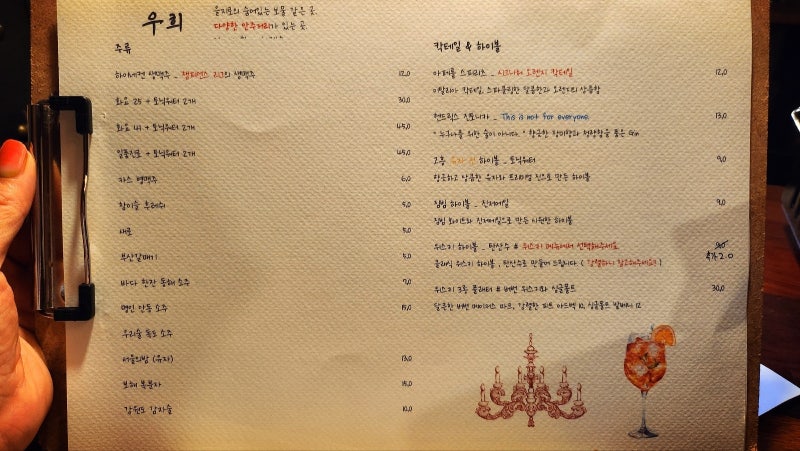 우리
을지로의 숨어있는 보물 같은 곳.
다양한 안주거리가 있는 곳.
주류
하이네켄 생맥주 _ 챔피언스 리그의 생맥주 12.0
화요 25 + 토닉워터 2개 30.0
화요 41 + 토닉워터 2개 45.0
일품진로 + 토닉워터 2개 45.0
카스 병맥주 6.0
참이슬 후레쉬 5.0
새로 5.0
부산갈매기 5.0
바다 한잔 동해 소주 7.0
명인 안동 소주 15.0
우리술 독도 소주
서울의밤 (유자) 13.0
보해 복분자 15.0
강원도 감자술 10.0
칵테일 & 하이볼
아페롤 스피리츠 _ 시그니처 오렌지 칵테일 12.0
이탈리아 칵테일, 스파클링한 달콤한과 오렌지의 상큼함
헨드릭스 진토니카 _ This is not for everyone. 13.0
" 누구나를 위한 술이 아니다. " 향긋한 장미향과 청량함을 품은 Gin
고흥 유자 진 하이볼 _ 토닉워터 9.0
향긋하고 상큼한 유자와 프리미엄 진으로 만든 하이볼
짐빔 하이볼 _ 진저에일 9.0
짐빔 화이트와 진저에일으로 만든 시원한 하이볼
위스키 하이볼 _ 탄산수 # 위스키 메뉴에서 선택해주세요 9.0
클래식 위스키 하이볼, 탄산수로 만들어 드립니다. ( 강렬하니 참고해주세요!! ) 추가 2.0
위스키 3종 플래터 # 버번 위스키와 싱글몰트 30.0
달콤한 버번 메이커스 마크, 강렬한 피트 아드벡 10, 싱글몰트 발베니 12